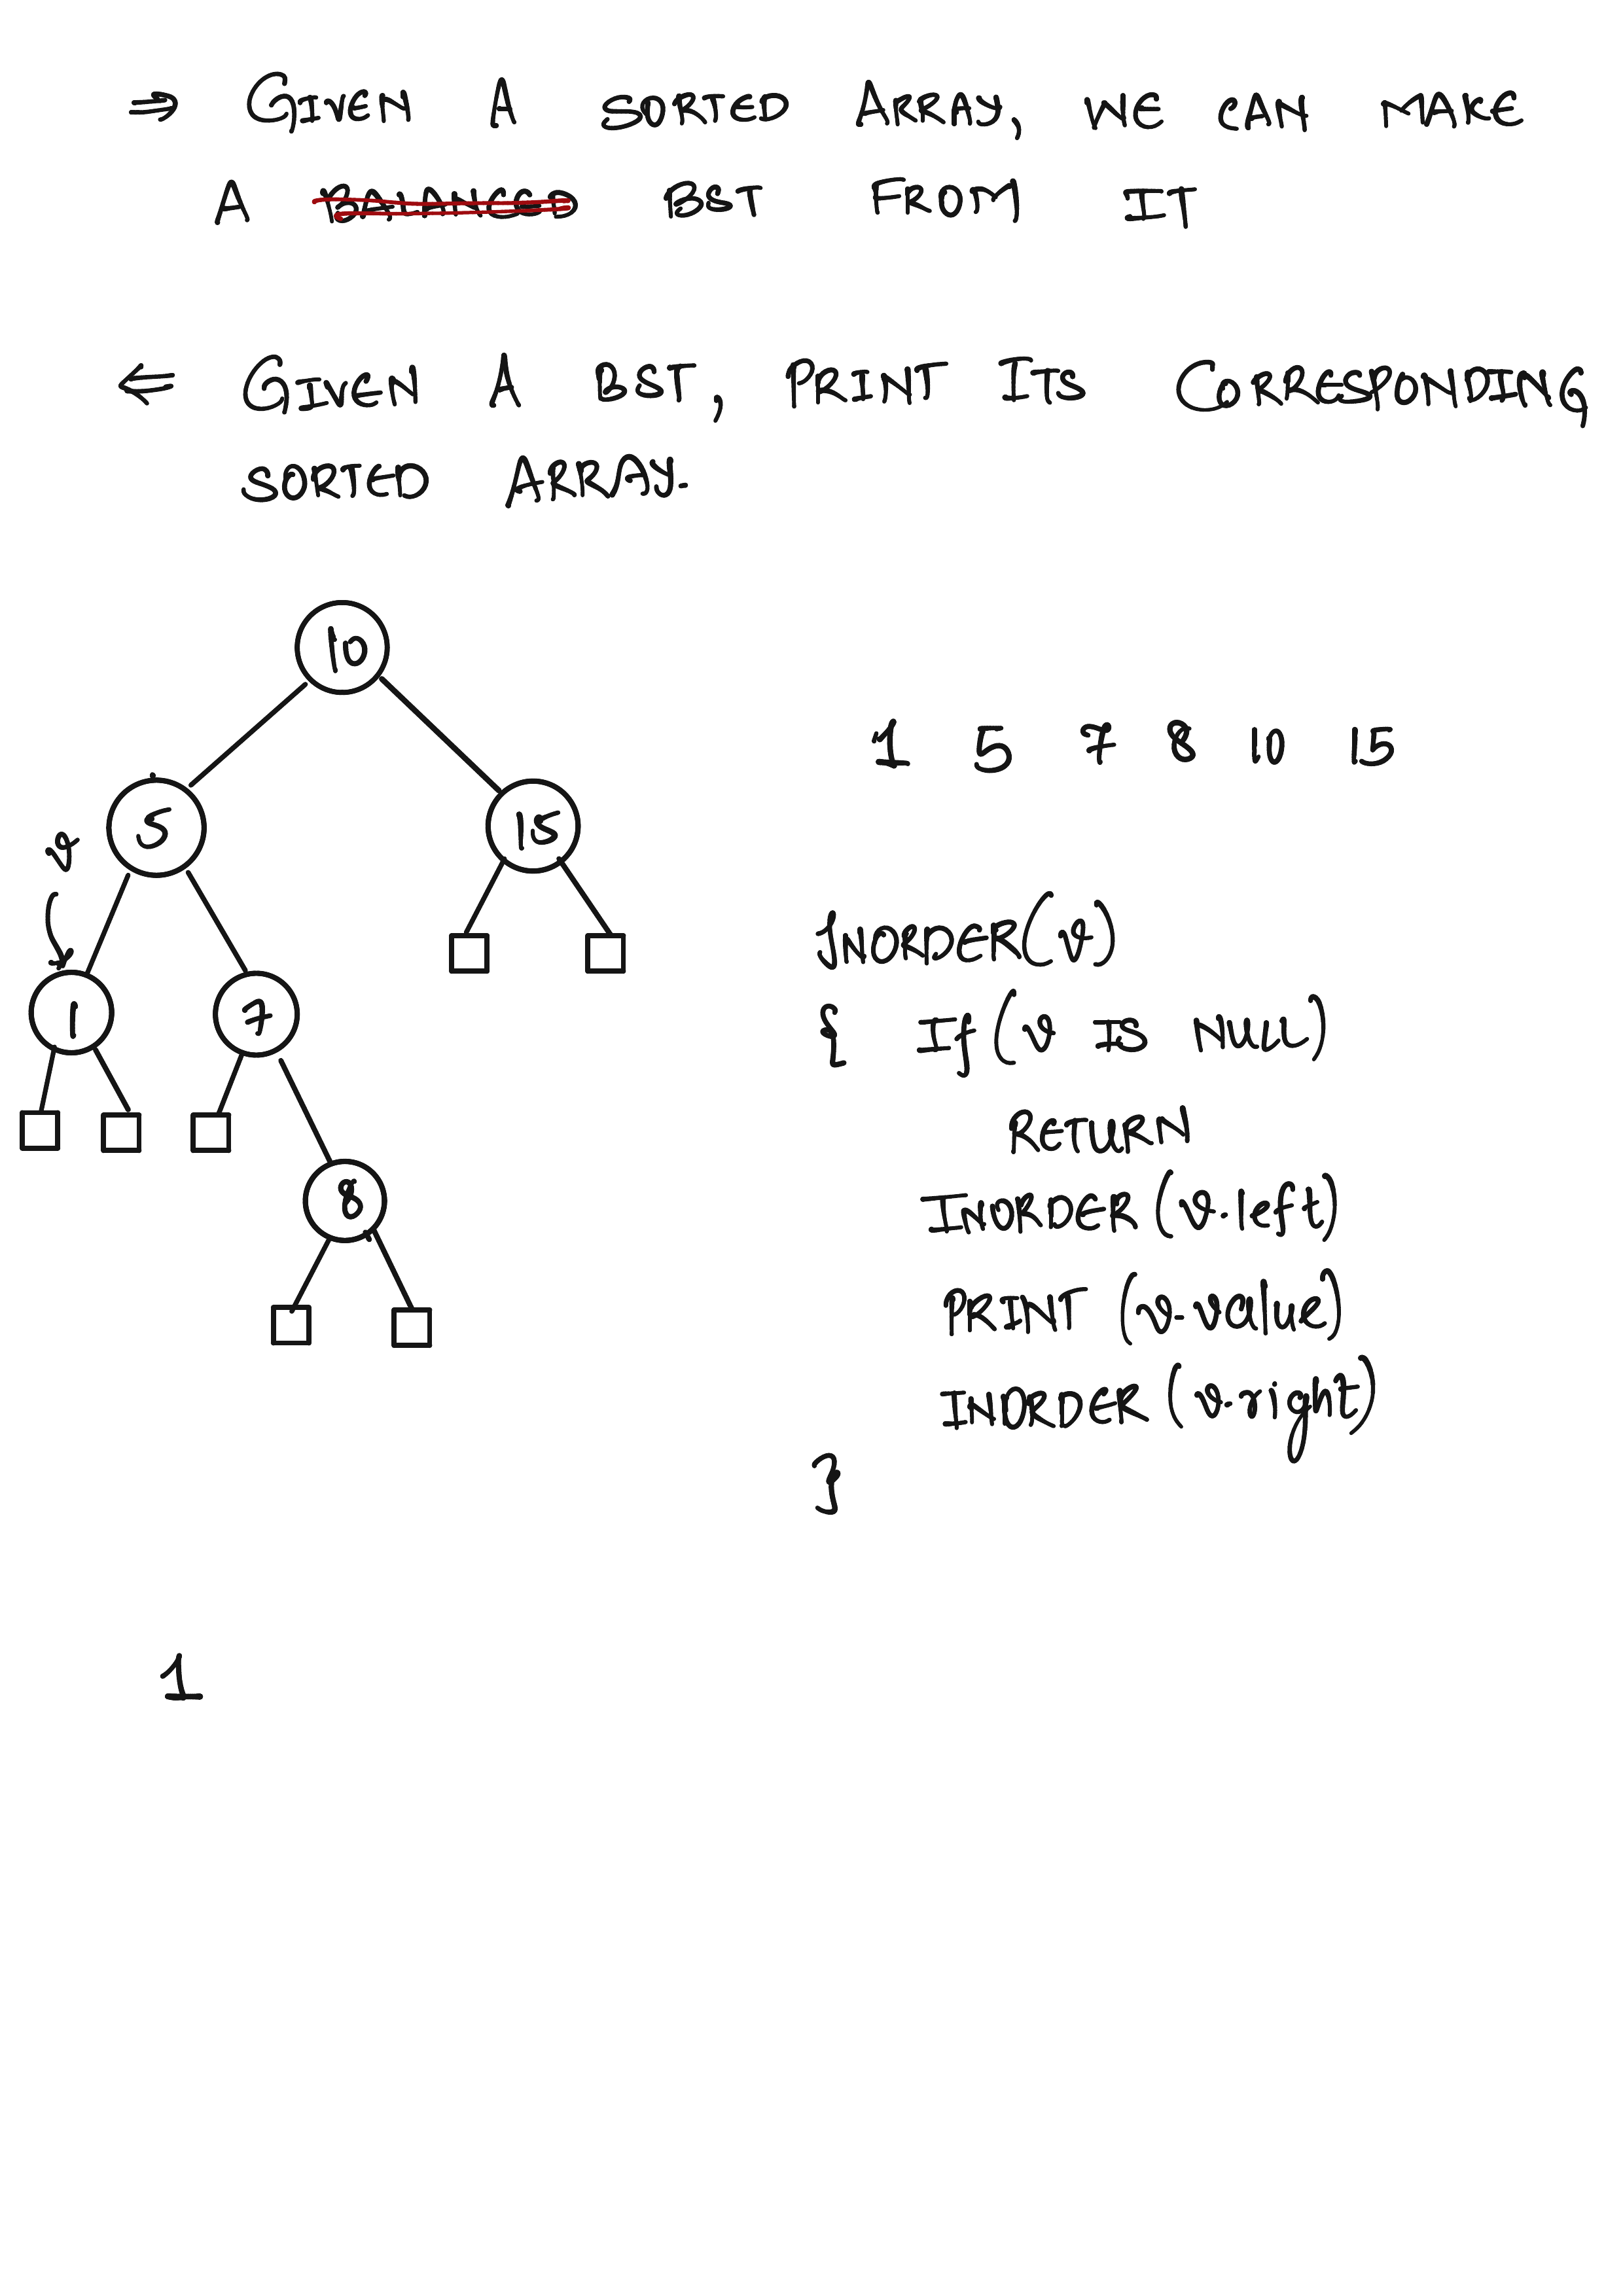 ⇒ GIVEN A SORTED ARRAY, WE CAN MAKE
A BALANCED BST FROM IT
⇐ GIVEN A BST, PRINT ITS CORRESPONDING
SORTED ARRAY.
10
1 5 7 8 10 15
5 15
v
INORDER(v)
1 7
{ If (v IS NULL)
RETURN
8
INORDER (v.left)
PRINT (v.value)
INORDER (v.right)
}
1